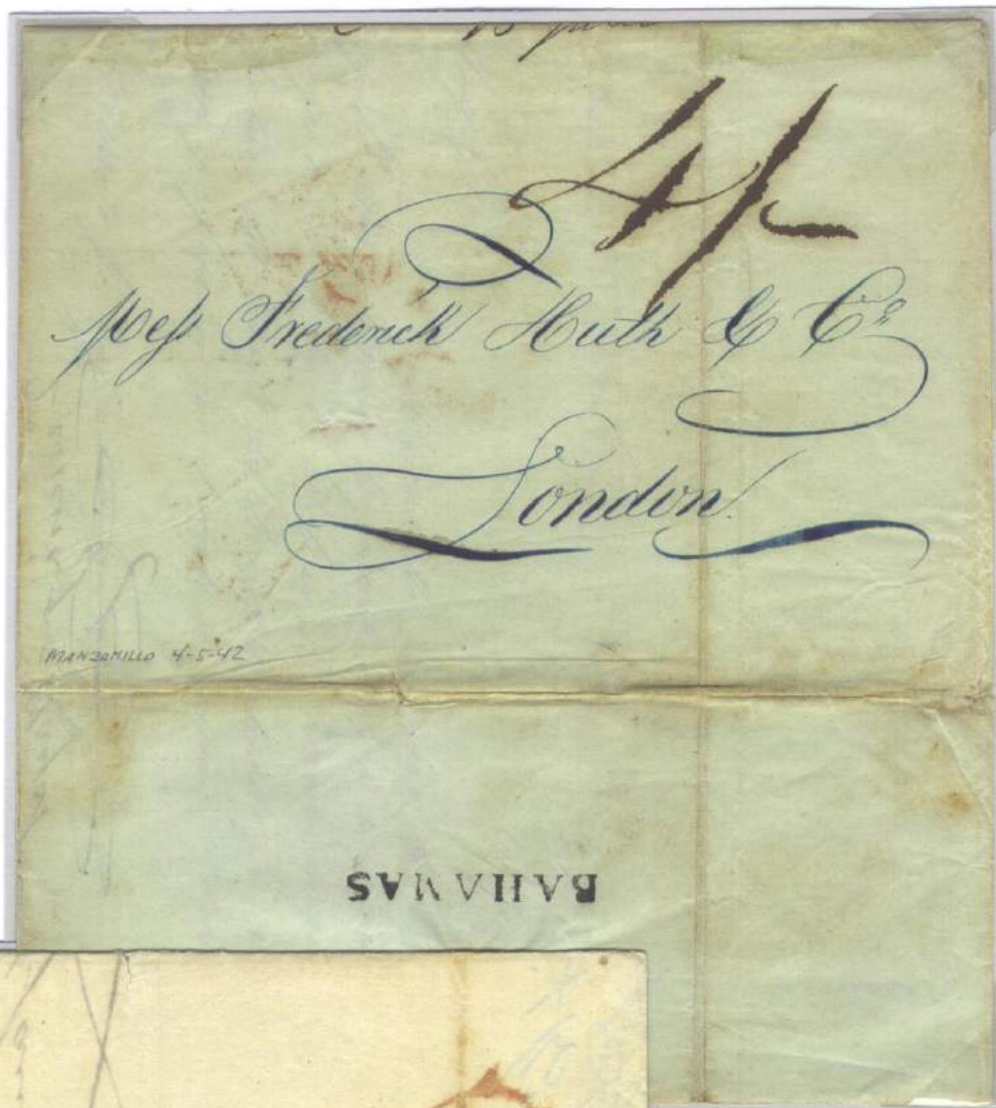 4/-
Mess Frederick Huth & Co
London
MANZANILLO 4-5-42
BAHAMAS